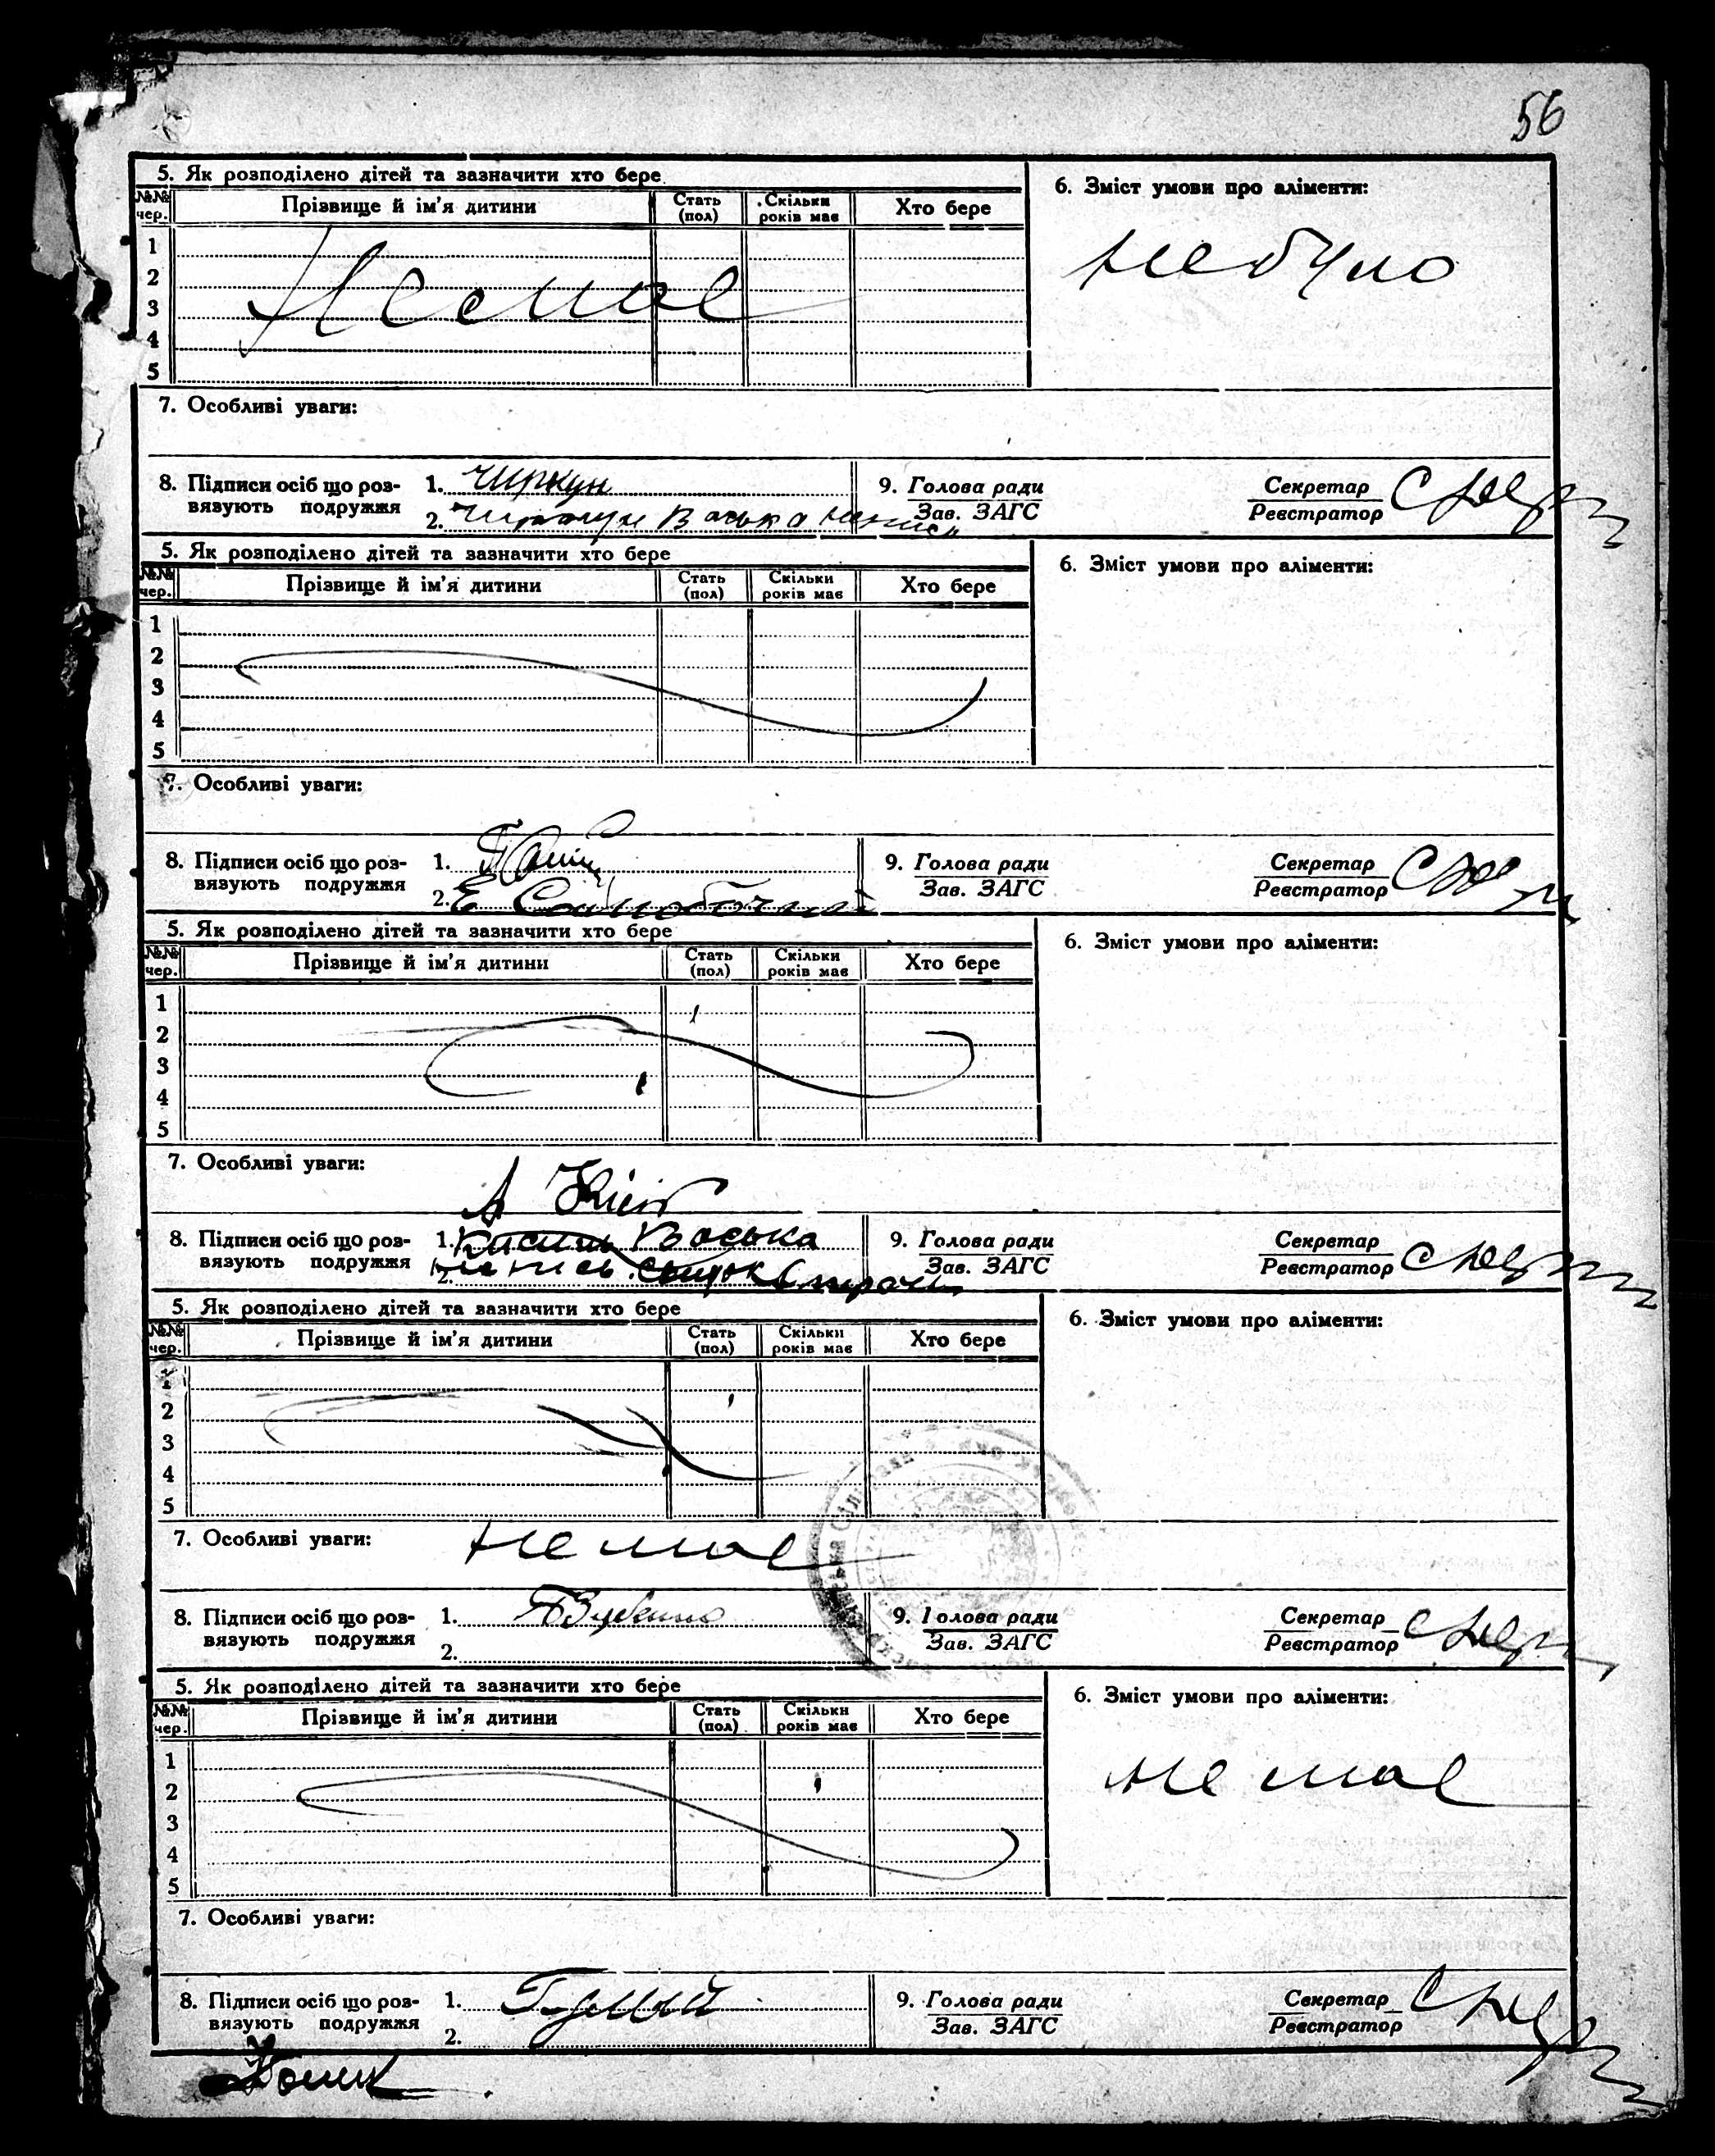 56
5. Як розподілено дітей та зазначити хто бере
6. Зміст умови про аліменти:
№№ чер. Прізвище й ім'я дитини Стать (пол) Скільки років має Хто бере
небуло
1
2
3
4
5
Немає
7. Особливі уваги:
8. Підписи осіб що роз-
вязують подружжя
1. Чиркун
2. Васька
9. Голова ради
Зав. ЗАГС
Секретар
Реєстратор
5. Як розподілено дітей та зазначити хто бере
6. Зміст умови про аліменти:
№№ чер. Прізвище й ім'я дитини Стать (пол) Скільки років має Хто бере
1
2
3
4
5
7. Особливі уваги:
8. Підписи осіб що роз-
вязують подружжя
1.
2. Е
9. Голова ради
Зав. ЗАГС
Секретар
Реєстратор
5. Як розподілено дітей та зазначити хто бере
6. Зміст умови про аліменти:
№№ чер. Прізвище й ім'я дитини Стать (пол) Скільки років має Хто бере
1
2
3
4
5
7. Особливі уваги:
8. Підписи осіб що роз-
вязують подружжя
1. Васька
2.
9. Голова ради
Зав. ЗАГС
Секретар
Реєстратор
5. Як розподілено дітей та зазначити хто бере
6. Зміст умови про аліменти:
№№ чер. Прізвище й ім'я дитини Стать (пол) Скільки років має Хто бере
1
2
3
4
5
7. Особливі уваги: немає
8. Підписи осіб що роз-
вязують подружжя
1.
2.
9. Голова ради
Зав. ЗАГС
Секретар
Реєстратор
5. Як розподілено дітей та зазначити хто бере
6. Зміст умови про аліменти:
№№ чер. Прізвище й ім'я дитини Стать (пол) Скільки років має Хто бере
1
2
3
4
5
немає
7. Особливі уваги:
8. Підписи осіб що роз-
вязують подружжя
1.
2.
9. Голова ради
Зав. ЗАГС
Секретар
Реєстратор